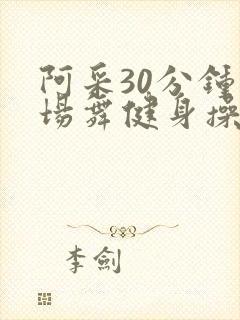 阿采30分鍾
場舞健身操
李劍